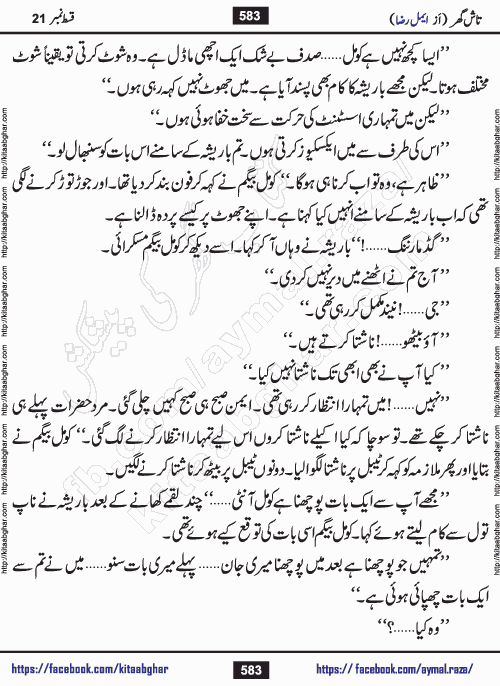 تاش گھر (از ایمل رضا)
583
قسط نمبر 21
’’ایسا کچھ نہیں ہے کومل......صدف بے شک ایک اچھی ماڈل ہے۔ وہ شوٹ کرتی تو یقیناً شوٹ
مختلف ہوتا۔ لیکن مجھے باریشہ کا کام بھی پسند آیا ہے۔ میں جھوٹ نہیں کہہ رہی ہوں۔‘‘
’’لیکن میں تمہاری اسسٹنٹ کی حرکت سے سخت خفا ہوئی ہوں۔‘‘
’’اس کی طرف سے میں ایکسکیوز کرتی ہوں۔ تم باریشہ کے سامنے اس بات کو سنبھال لو۔‘‘
’’ظاہر ہے، وہ تو اب کرنا ہی ہوگا۔‘‘ کومل بیگم نے کہہ کر فون بند کر دیا تھا۔ اور جوڑ توڑ کرنے لگی
تھی کہ اب باریشہ کے سامنے انہیں کیا کہنا ہے۔ اپنے جھوٹ پر کیسے پردہ ڈالنا ہے۔
’’گڈ مارننگ......!‘‘ باریشہ نے وہاں آ کر کہا۔ اسے دیکھ کر کومل بیگم مسکرائی۔
’’آج تم نے اٹھنے میں دیر نہیں کر دی۔‘‘
’’جی......! نیند مکمل کر رہی تھی۔‘‘
’’آؤ بیٹھو......! ناشتا کرتے ہیں۔‘‘
’’کیا آپ نے بھی ابھی تک ناشتا نہیں کیا۔‘‘
’’نہیں......! میں تمہارا انتظار کر رہی تھی۔ ایمن صبح ہی صبح کہیں چلی گئی۔ مرد حضرات پہلے ہی
ناشتا کر چکے تھے۔ تو سوچا کہ کیا اکیلے ناشتا کروں اس لیے تمہارا انتظار کرنے لگ گئی۔‘‘ کومل بیگم نے
بتایا اور پھر ملازمہ کو کہہ کر ٹیبل پر ناشتا لگوا لیا۔ دونوں ٹیبل پر بیٹھ کر ناشتا کرنے لگیں۔
’’مجھے آپ سے ایک بات پوچھنا ہے کومل آنٹی......‘‘ چند لقمے کھانے کے بعد باریشہ نے ناپ
تول سے کام لیتے ہوئے کہا۔ کومل بیگم اسی بات کی توقع کیے ہوئے تھی۔
’’تمہیں جو پوچھنا ہے بعد میں پوچھنا میری جان...... پہلے میری بات سنو...... میں نے تم سے
ایک بات چھپائی ہوئی ہے۔‘‘
’’وہ کیا......؟‘‘
https://facebook.com/kitaabghar
583
https:// facebook.com/aymal.raza/
http://kitaabghar.com http://kitaabghar.com http://kitaabghar.com http://kitaabghar.com http://kitaabghar.com http://kitaabghar.com
http://kitaabghar.com http://kitaabghar.com http://kitaabghar.com http://kitaabghar.com http://kitaabghar.com http://kitaabghar.com